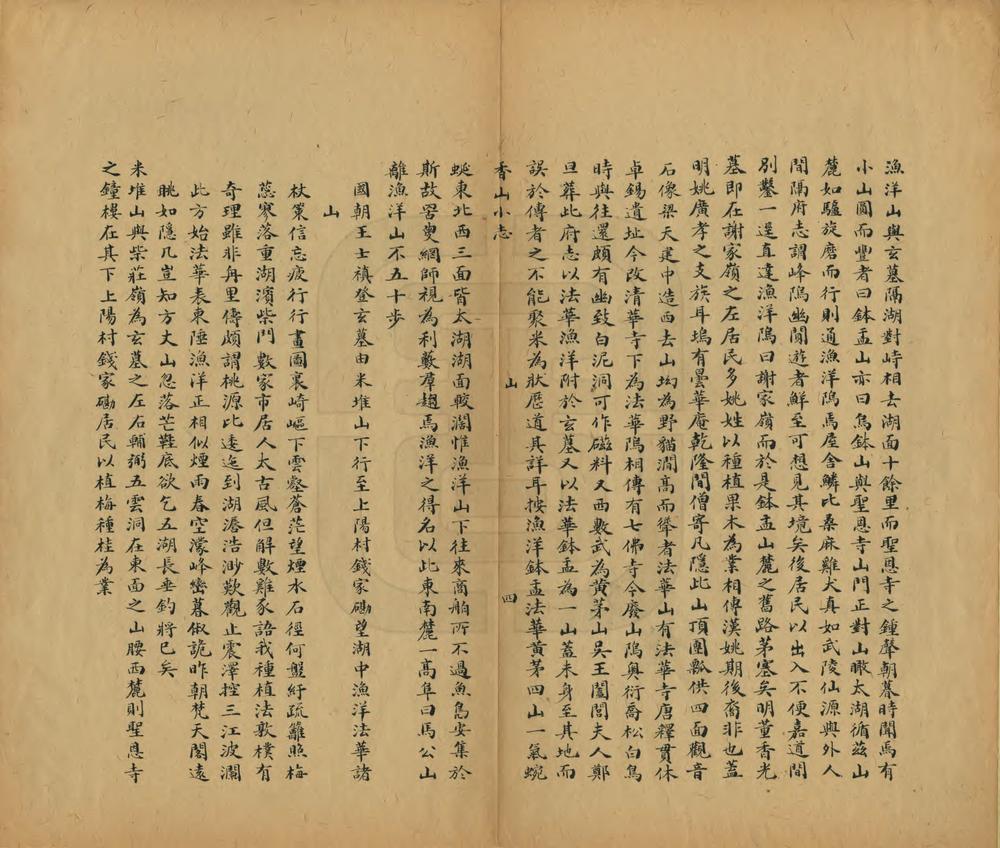 漁洋山與玄墓隔湖對峙相去湖面十餘里而聖恩寺之鐘聲朝暮時聞焉有
小山圓而豐者曰鉢盂山亦曰烏鉢山與聖恩寺山門正對山瞰太湖循茲山
麓如驢旋磨而行則通漁洋塢焉屋舍鱗比桑麻雞犬真如武陵仙源與外人
間隔府志謂峰塢幽閴遊者鮮至可想見其境矣後居民以出入不便嘉道間
別鑿一逕直達漁洋塢曰謝家嶺而於是鉢盂山麓之舊路茅塞矣明董香光
墓即在謝家嶺之左居民多姚姓以種植果木為業相傳漢姚期後裔非也蓋
明姚廣孝之支族耳塢有曇華庵乾隆間僧寄凡隱此山頂圍瓢供四面觀音
石像梁天建中造西去山坳為野貓澗高而聳者法華山有法華寺唐釋貫休
卓錫遺址今改清華寺下為法華塢相傳有七佛寺今廢山塢奧衍喬松白鳥
時與往還頗有幽致白泥洞可作磁料又西數武為黃茅山吳王闔閭夫人鄭
旦葬此府志以法華漁洋附於玄墓又以法華鉢盂為一山蓋未身至其地而
誤於傳者之不能聚米為狀歷道其詳耳按漁洋鉢盂法華黃茅四山一氣蜿
香山小志 山 四
蜒東北西三面皆太湖湖面較濶惟漁洋山下往來商舶所不過魚鳥安集於
斯故罟叟網師視為利藪羣趨焉漁洋之得名以此東南麓一高阜曰馬公山
離漁洋山不五十步
國朝王士禛登玄墓由米堆山下行至上陽村錢家磡望湖中漁洋法華諸
山
杖策信忘疲行行畫圖裏崎嶇下雲壑蒼茫望煙水石徑何盤紆疏籬照梅
蕊寒落重湖濱柴門數家市居人太古風但解數雞豕語我種植法歎樸有
奇理雖非冉里儔頗謂桃源比逶迤到湖漘浩渺歎觀止震澤控三江波瀾
此方始法華表東陲漁洋正相似煙雨春空濛峰巒暮俶詭昨朝梵天閣遠
眺如隱几豈知方丈山忽落芒鞋底欲乞五湖長垂釣將已矣
米堆山與柴莊嶺為玄墓之左右輔弼五雲洞在東面之山腰西麓則聖恩寺
之鐘樓在其下上陽村錢家磡居民以植梅種桂為業